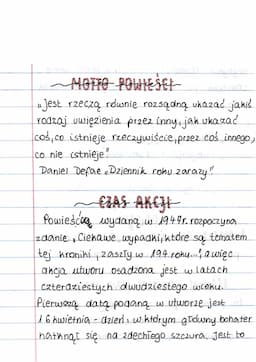 MOTTO POWIEŚCI
„Jest rzeczą równie rozsądną ukazać jakiś
rodzaj uwięzienia przez inny, jak ukazać
coś, co istnieje rzeczywiście, przez coś innego,
co nie istnieje"
Daniel Defoe „Dziennik roku zarazy"
CZAS AKCJI
Powieść wydaną w 1947r. rozpoczyna
zdanie „Ciekawe wypadki, które są tematem
tej kroniki, zaszły w 194. roku...", a więc
akcja utworu osadzona jest w latach
czterdziestych dwudziestego wieku.
Pierwszą datą podaną w utworze jest
16 kwietnia - dzień, w którym główny bohater
natknął się na zdechłego szczura. Jest to